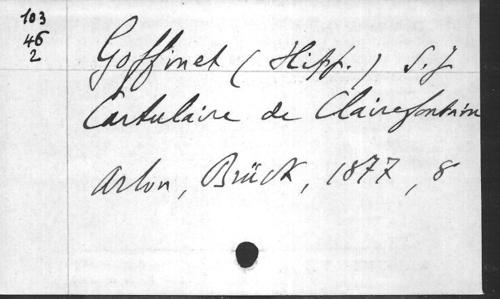 103
46
2
Goffinet (Hipp.) S. J
Cartulaire de Clairefontain
Arlon, Brück, 1877, 8